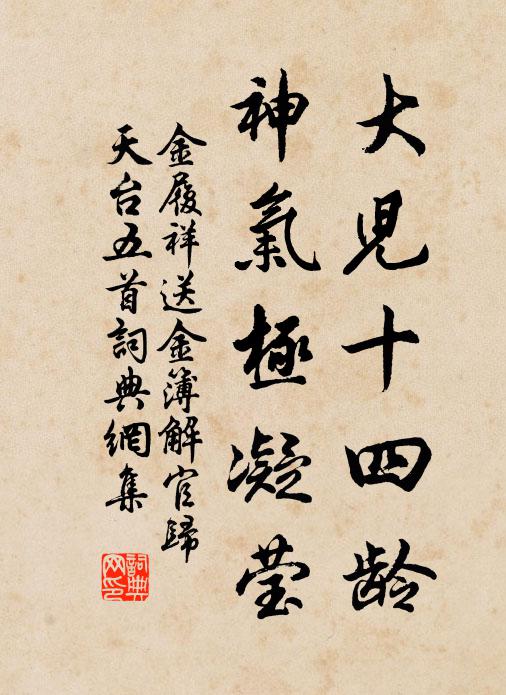 大児十四龄
神氣極凝莹
金履祥送金簿解官歸
天台五首詞典網集
詞典
网印